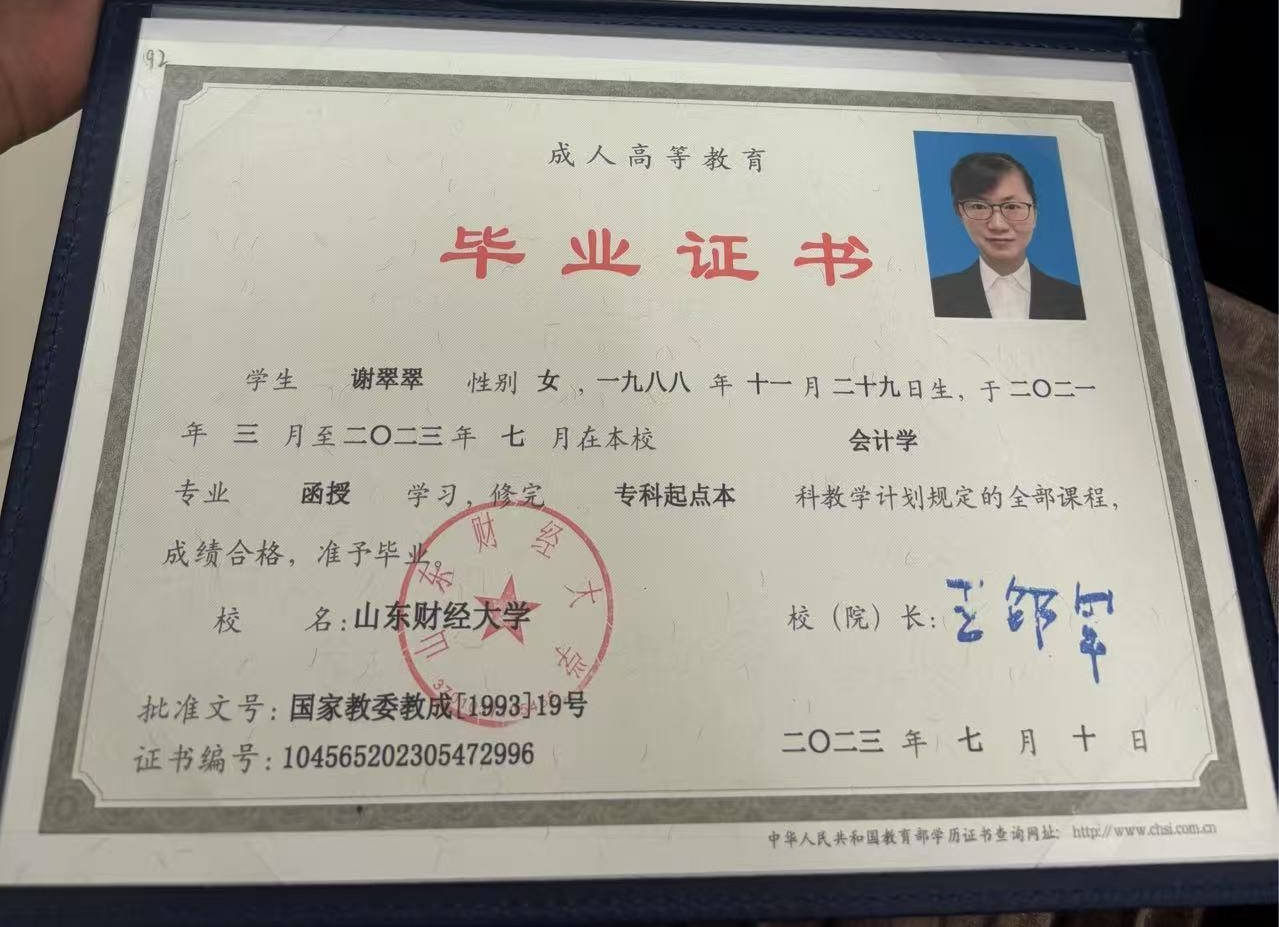 92
成人高等教育
毕业证书
学生 谢翠翠 性别 女，一九八八 年 十一 月 二十九 日生，于 二〇二一
年 三 月至 二〇二三 年 七 月在本校 会计学
专业 函授 学习，修完 专科起点本 科教学计划规定的全部课程，
成绩合格，准予毕业。
山东财经大学
校 名：山东财经大学 校（院）长：
批准文号：国家教委教成[1993]19号
证书编号：104565202305472996 二〇二三 年 七 月 十 日
中华人民共和国教育部学历证书查询网址：http://www.chsi.com.cn